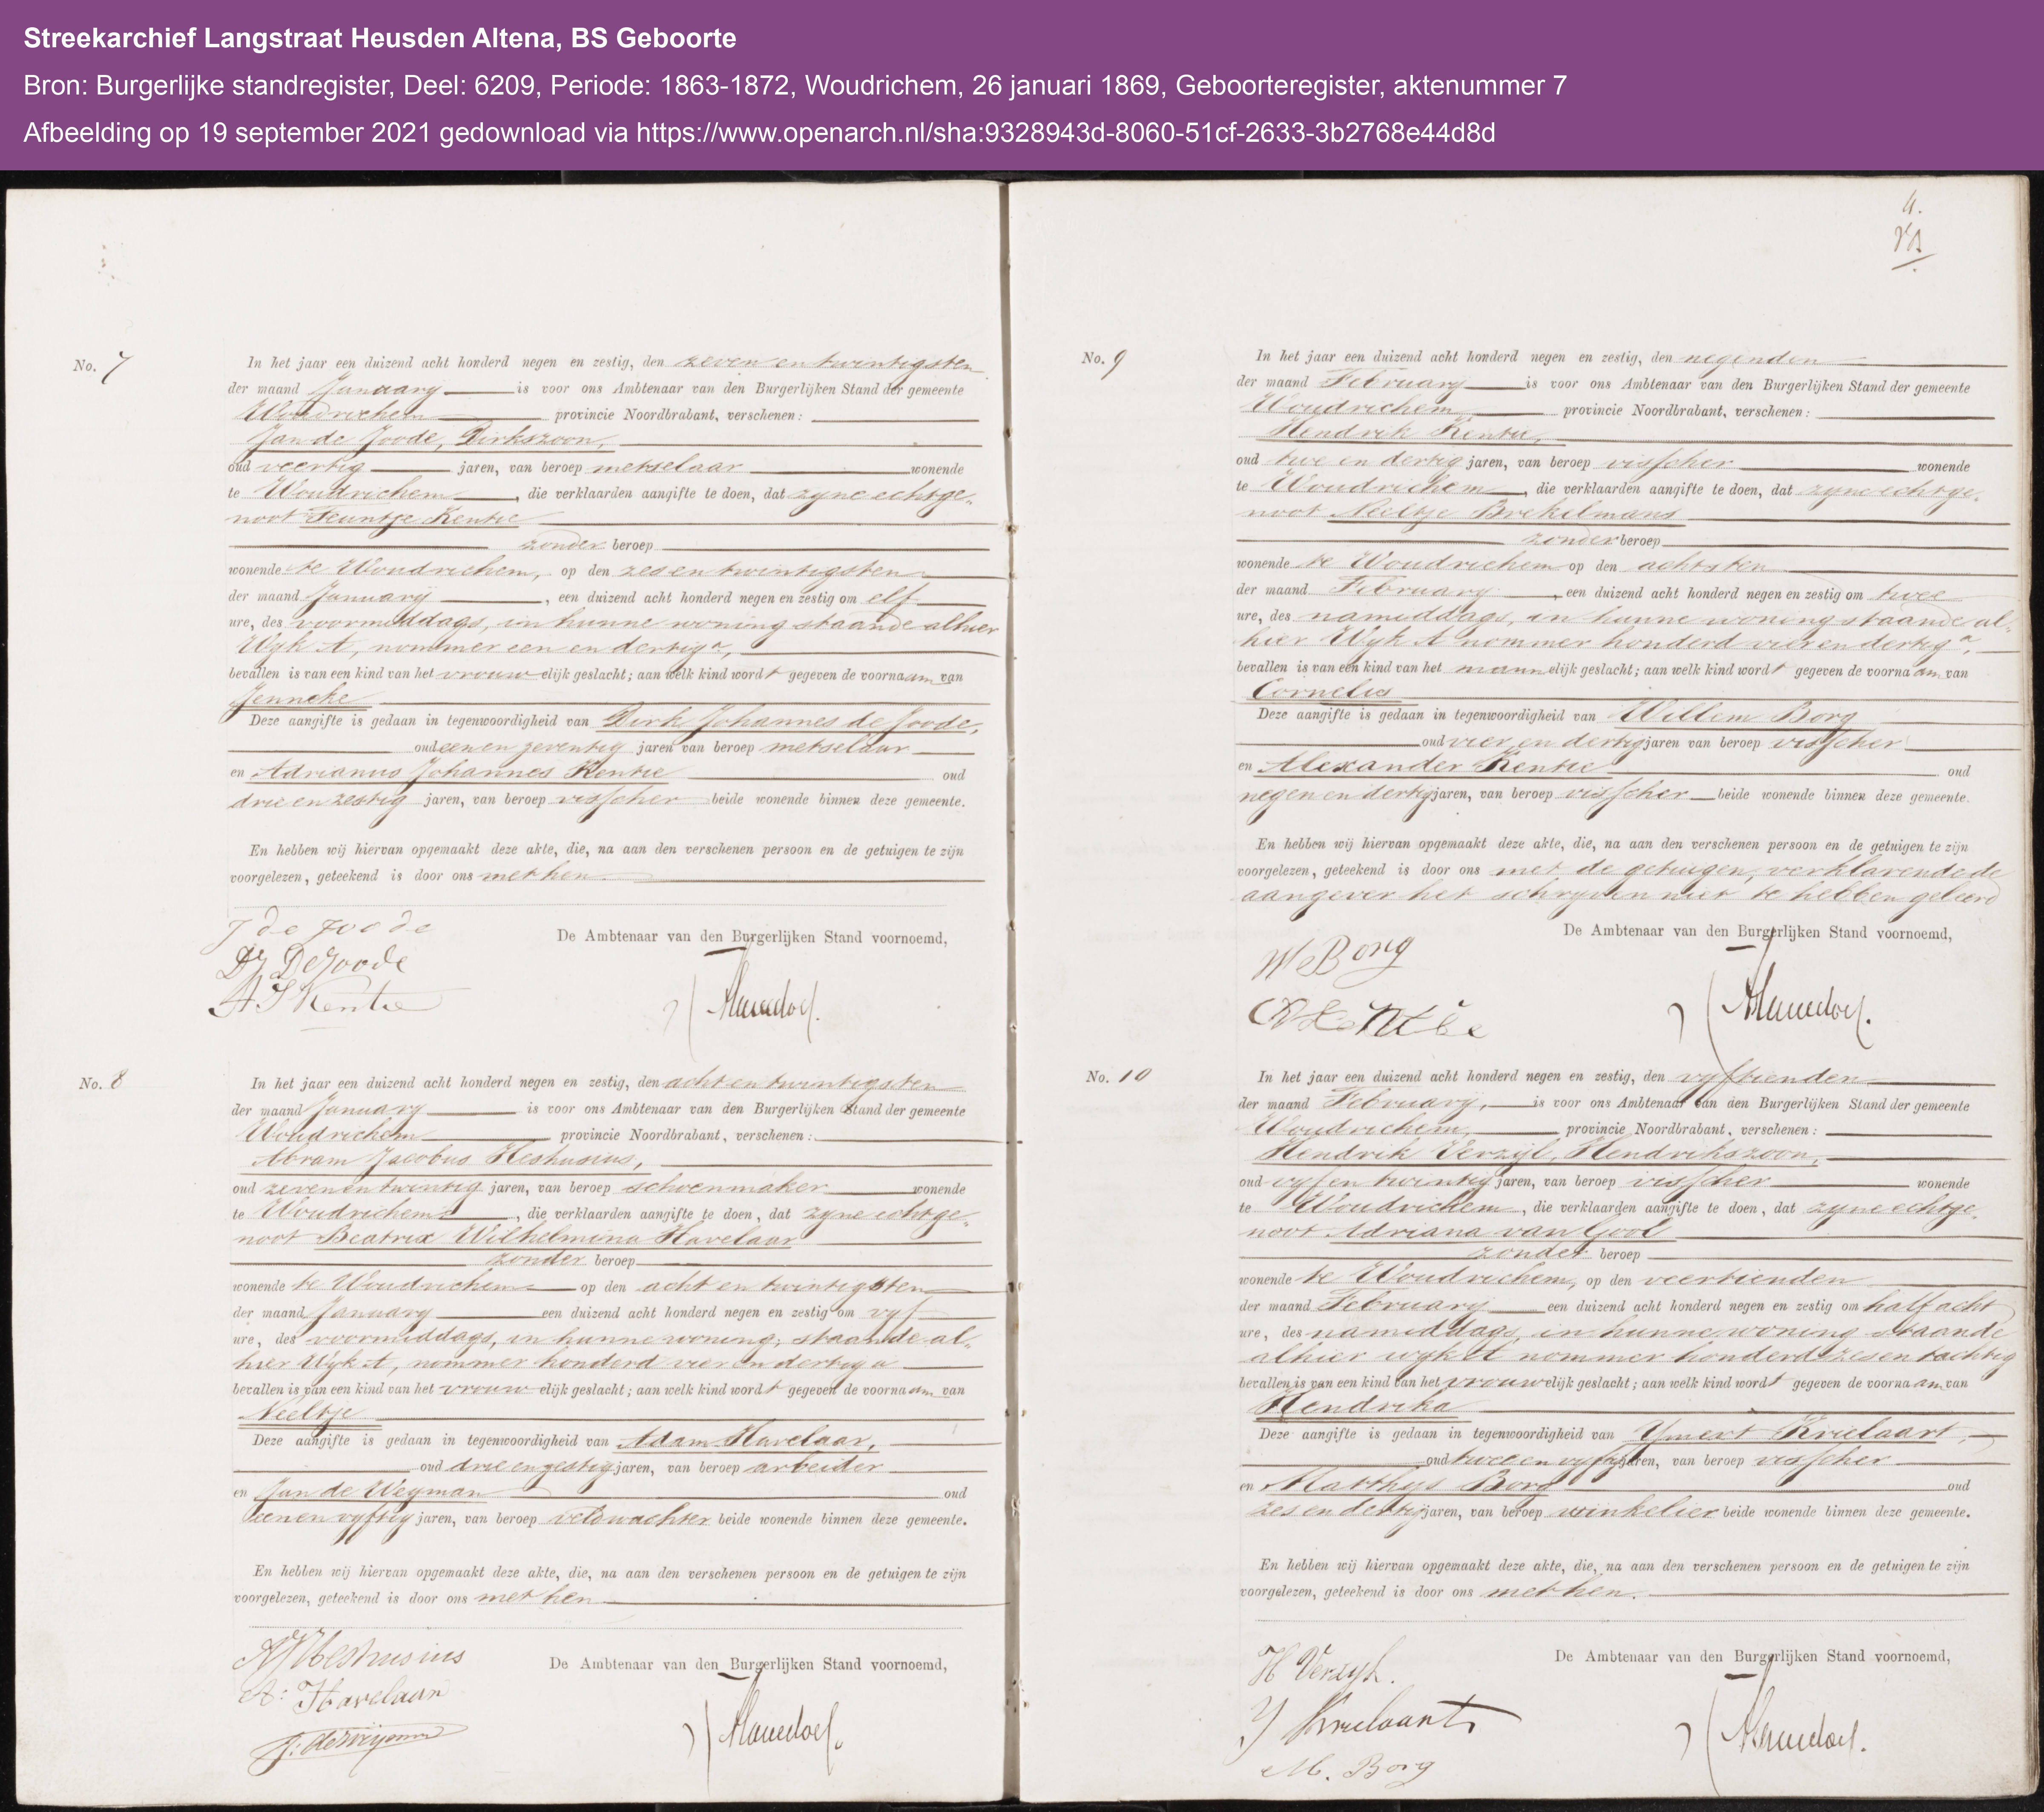 Streekarchief Langstraat Heusden Altena, BS Geboorte
Bron: Burgerlijke standregister, Deel: 6209, Periode: 1863-1872, Woudrichem, 26 januari 1869, Geboorteregister, aktenummer 7
Afbeelding op 19 september 2021 gedownload via https://www.openarch.nl/sha:9328943d-8060-51cf-2633-3b2768e44d8d
No. 7
In het jaar een duizend acht honderd negen en zestig, den zeven en twintigsten
der maand January is voor ons Ambtenaar van den Burgerlijken Stand der gemeente
Woudrichem provincie Noordbrabant, verschenen:
Jan de Joode, Dirkszoon,
oud veertig jaren, van beroep metselaar wonende
te Woudrichem, die verklaarden aangifte te doen, dat zyne echtge-
noot Teuntje Kentie
zonder beroep
wonende te Woudrichem, op den zes en twintigsten
der maand January, een duizend acht honderd negen en zestig om elf
ure, des voormiddags, in hunne woning staande alhier
Wyk A, nommer een en dertig a,
bevallen is van een kind van het vrouwelijk geslacht; aan welk kind wordt gegeven de voornaam van
Jenneke
Deze aangifte is gedaan in tegenwoordigheid van Dirk Johannes de Joode,
oud een en zeventig jaren van beroep metselaar
en Adrianus Johannes Kentie oud
drie en zestig jaren, van beroep visscher beide wonende binnen deze gemeente.
En hebben wij hiervan opgemaakt deze akte, die, na aan den verschenen persoon en de getuigen te zijn
voorgelezen, geteekend is door ons met hen.
J de Joode
DJ DeJoode
AJ Kentie
De Ambtenaar van den Burgerlijken Stand voornoemd,
No. 8
In het jaar een duizend acht honderd negen en zestig, den acht en twintigsten
der maand January is voor ons Ambtenaar van den Burgerlijken Stand der gemeente
Woudrichem provincie Noordbrabant, verschenen:
Abram Jacobus Heshusius,
oud zeven en twintig jaren, van beroep schoenmaker wonende
te Woudrichem, die verklaarden aangifte te doen, dat zyne echtge-
noot Beatrix Wilhelmina Havelaar
zonder beroep
wonende te Woudrichem op den acht en twintigsten
der maand January een duizend acht honderd negen en zestig om vyf
ure, des voormiddags, in hunne woning, staande al-
hier Wyk A, nommer honderd vier en dertig a
bevallen is van een kind van het vrouwelijk geslacht; aan welk kind wordt gegeven de voornaam van
Neeltje
Deze aangifte is gedaan in tegenwoordigheid van Adam Havelaar,
oud drie en zestig jaren, van beroep arbeider
en Jan de Weyman oud
een en vyftig jaren, van beroep veldwachter beide wonende binnen deze gemeente.
En hebben wij hiervan opgemaakt deze akte, die, na aan den verschenen persoon en de getuigen te zijn
voorgelezen, geteekend is door ons met hen
AJ Heshusius
A: Havelaar
J: de Weyman
De Ambtenaar van den Burgerlijken Stand voornoemd,
4.
No. 9
In het jaar een duizend acht honderd negen en zestig, den negenden
der maand February is voor ons Ambtenaar van den Burgerlijken Stand der gemeente
Woudrichem provincie Noordbrabant, verschenen:
Hendrik Kentie,
oud twe en dertig jaren, van beroep visscher wonende
te Woudrichem, die verklaarden aangifte te doen, dat zyne echtge-
noot Meltje Brekelmans
zonder beroep
wonende te Woudrichem op den achtsten
der maand February, een duizend acht honderd negen en zestig om twee
ure, des namiddags, in hunne woning staande al-
hier Wyk A nommer honderd vier en dertig a,
bevallen is van een kind van het mannelijk geslacht; aan welk kind wordt gegeven de voornaam van
Cornelis
Deze aangifte is gedaan in tegenwoordigheid van Willem Borg
oud vier en dertig jaren van beroep visscher
en Alexander Kentie oud
negen en dertig jaren, van beroep visscher beide wonende binnen deze gemeente.
En hebben wij hiervan opgemaakt deze akte, die, na aan den verschenen persoon en de getuigen te zijn
voorgelezen, geteekend is door ons met de getuigen, verklarende de
aangever het schryven niet te hebben geleerd
De Ambtenaar van den Burgerlijken Stand voornoemd,
W Borg
No. 10
In het jaar een duizend acht honderd negen en zestig, den vyftienden
der maand February, is voor ons Ambtenaar van den Burgerlijken Stand der gemeente
Woudrichem, provincie Noordbrabant, verschenen:
Hendrik Verzyl, Hendrikszoon,
oud vyf en twintig jaren, van beroep visscher wonende
te Woudrichem, die verklaarden aangifte te doen, dat zyne echtge-
noot Adriana van Gool
zonder beroep
wonende te Woudrichem, op den veertienden
der maand February een duizend acht honderd negen en zestig om half acht
ure, des namiddags, in hunne woning staande
alhier wyk A nommer honderd zes en tachtig
bevallen is van een kind van het vrouwelijk geslacht; aan welk kind wordt gegeven de voornaam van
Hendrika
Deze aangifte is gedaan in tegenwoordigheid van Ymert Krielaart,
oud twee en vyftig jaren, van beroep visscher
en Matthys Borg oud
zes en dertig jaren, van beroep winkelier beide wonende binnen deze gemeente.
En hebben wij hiervan opgemaakt deze akte, die, na aan den verschenen persoon en de getuigen te zijn
voorgelezen, geteekend is door ons met hen.
De Ambtenaar van den Burgerlijken Stand voornoemd,
H Verzyl.
Y Krielaart
M. Borg